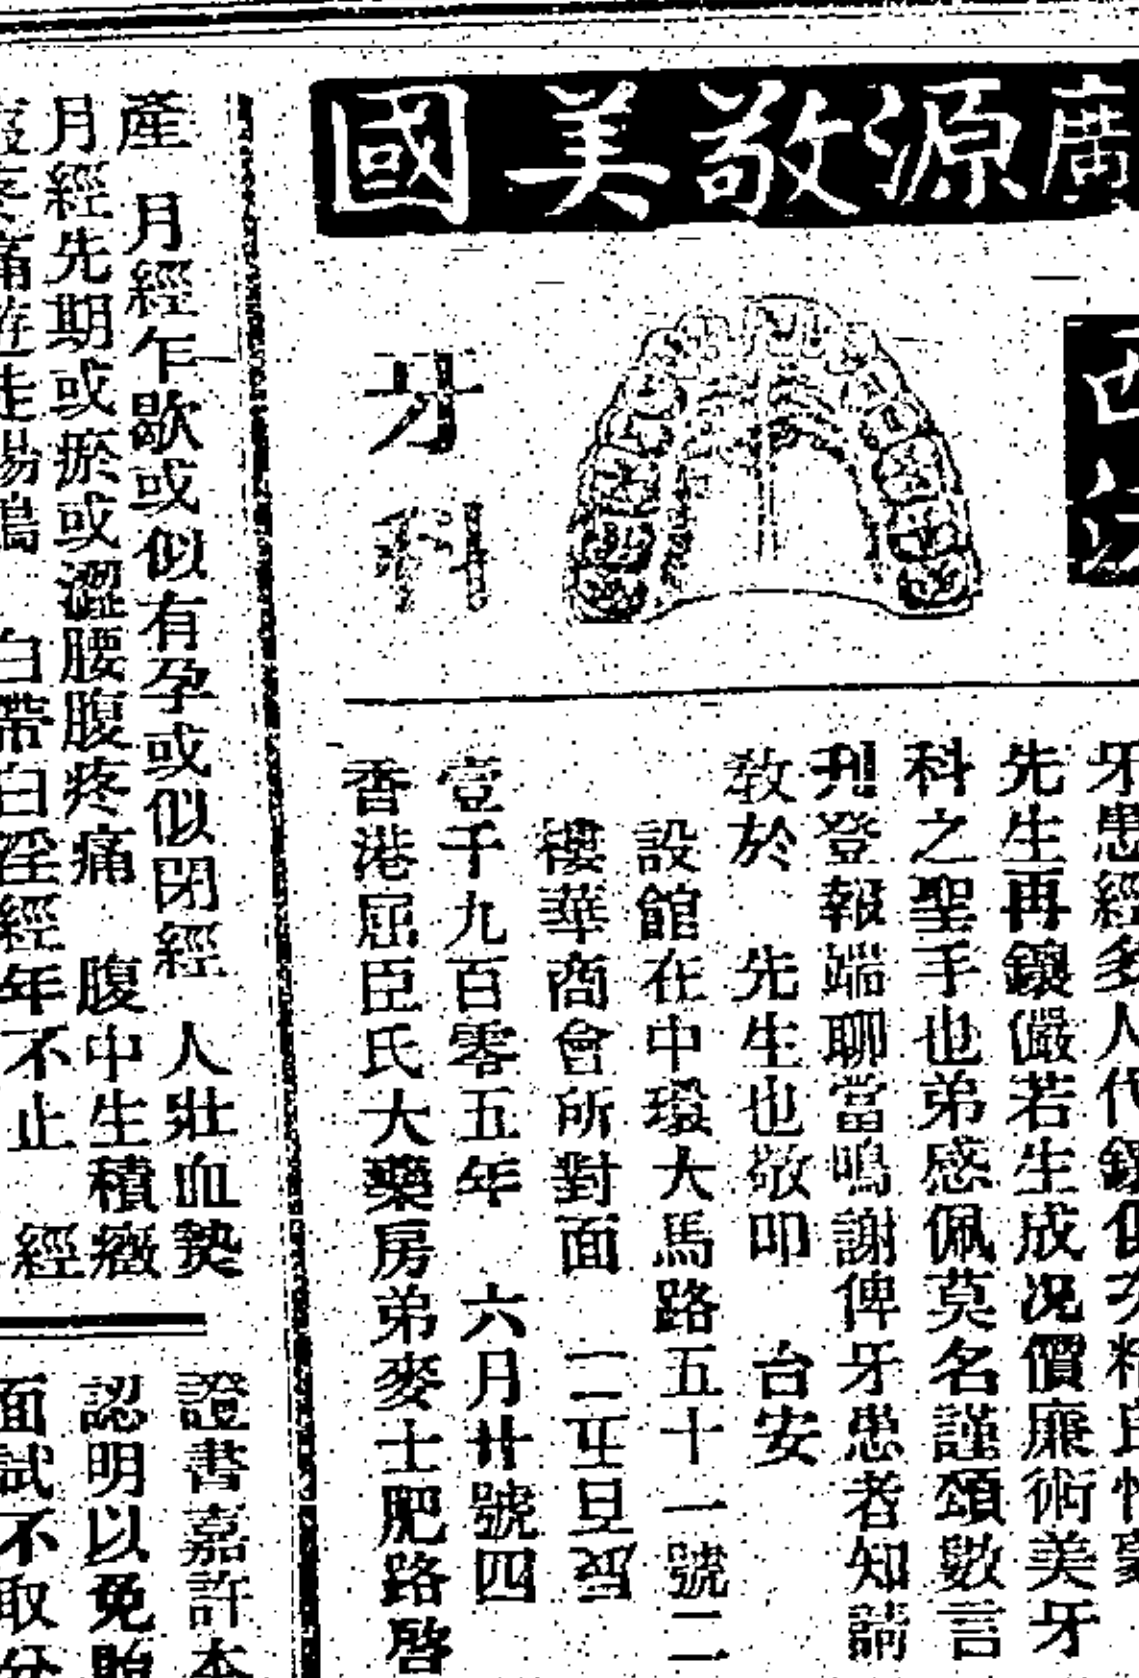 國美敬源廣
牙科
牙患經多人代鑲
先生再鑲儼若生成况價廉術美牙
科之聖手也弟感佩莫名謹頌數言
刋登報端聊當鳴謝俾牙患者知請
敎於 先生也敬叩 台安
設館在中環大馬路五十一號二
樓華商會所對面
壹千九百零五年 六月廿號四
香港屈臣氏大藥房弟麥士肥路啓
產 月經乍歇或似有孕或似閉經 人壯血𤍠
月經先期或瘀或澀腰腹疼痛 腹中生積癥
白帶白淫經年不止 經
證書嘉許本
認明以免貽
面試不取分